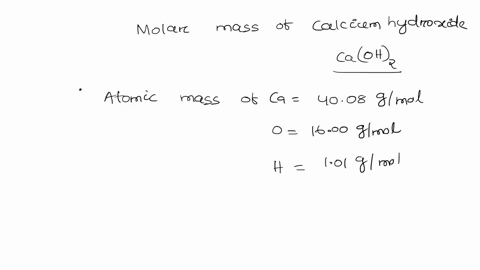 Molar mass of Calcium hydroxide
Ca(OH)2
Atomic mass of Ca = 40.08 g/mol
O = 16.00 g/mol
H = 1.01 g/mol